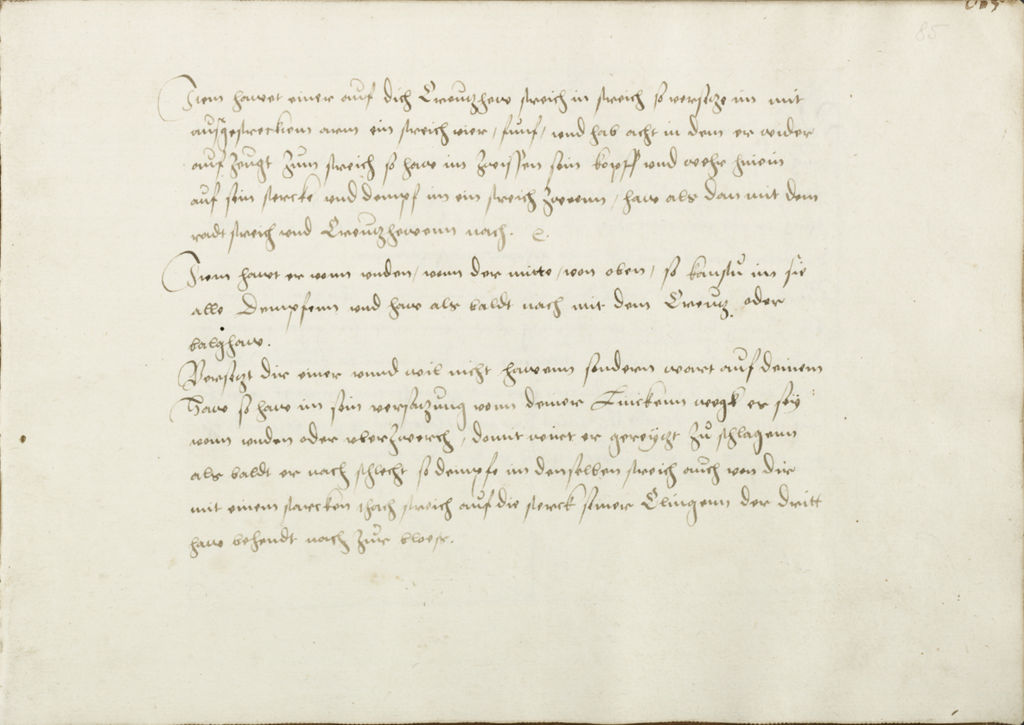 85
Item hawet einer auf dich Creutzhew streich in streich so versetze im mit
aussgestrecktem arm ein streich vier, funf, vnd hab acht in dem er wider
auf zeugt zum streich so haw im zwissen sein kopff vnd wehr hinein
auf sein stercke vnd dempf im ein streich zweenn, haw als dan mit dem
radt streich vnd Creutzhewenn nach.
Item hawt er vonn vnden, vonn der mitte, von oben, so kanstu im sie
alle Dempfenn vnd haw als baldt nach mit dem Creutz oder
halghaw.
Versetzt dir einer vnnd wil nicht hawenn sondern wart auf deinem
Haw so haw im sein versatzung vonn deiner Linckenn wegk er sey
vonn vnden oder vberzwerch, domit wirt er gereytzt zu schlagenn
als baldt er nach schlecht so dempfe im denselben streich auch von dir
mit einem starcken tach streich auf die sterck seiner Clingenn der dritt
haw behendt nach zur bloess.